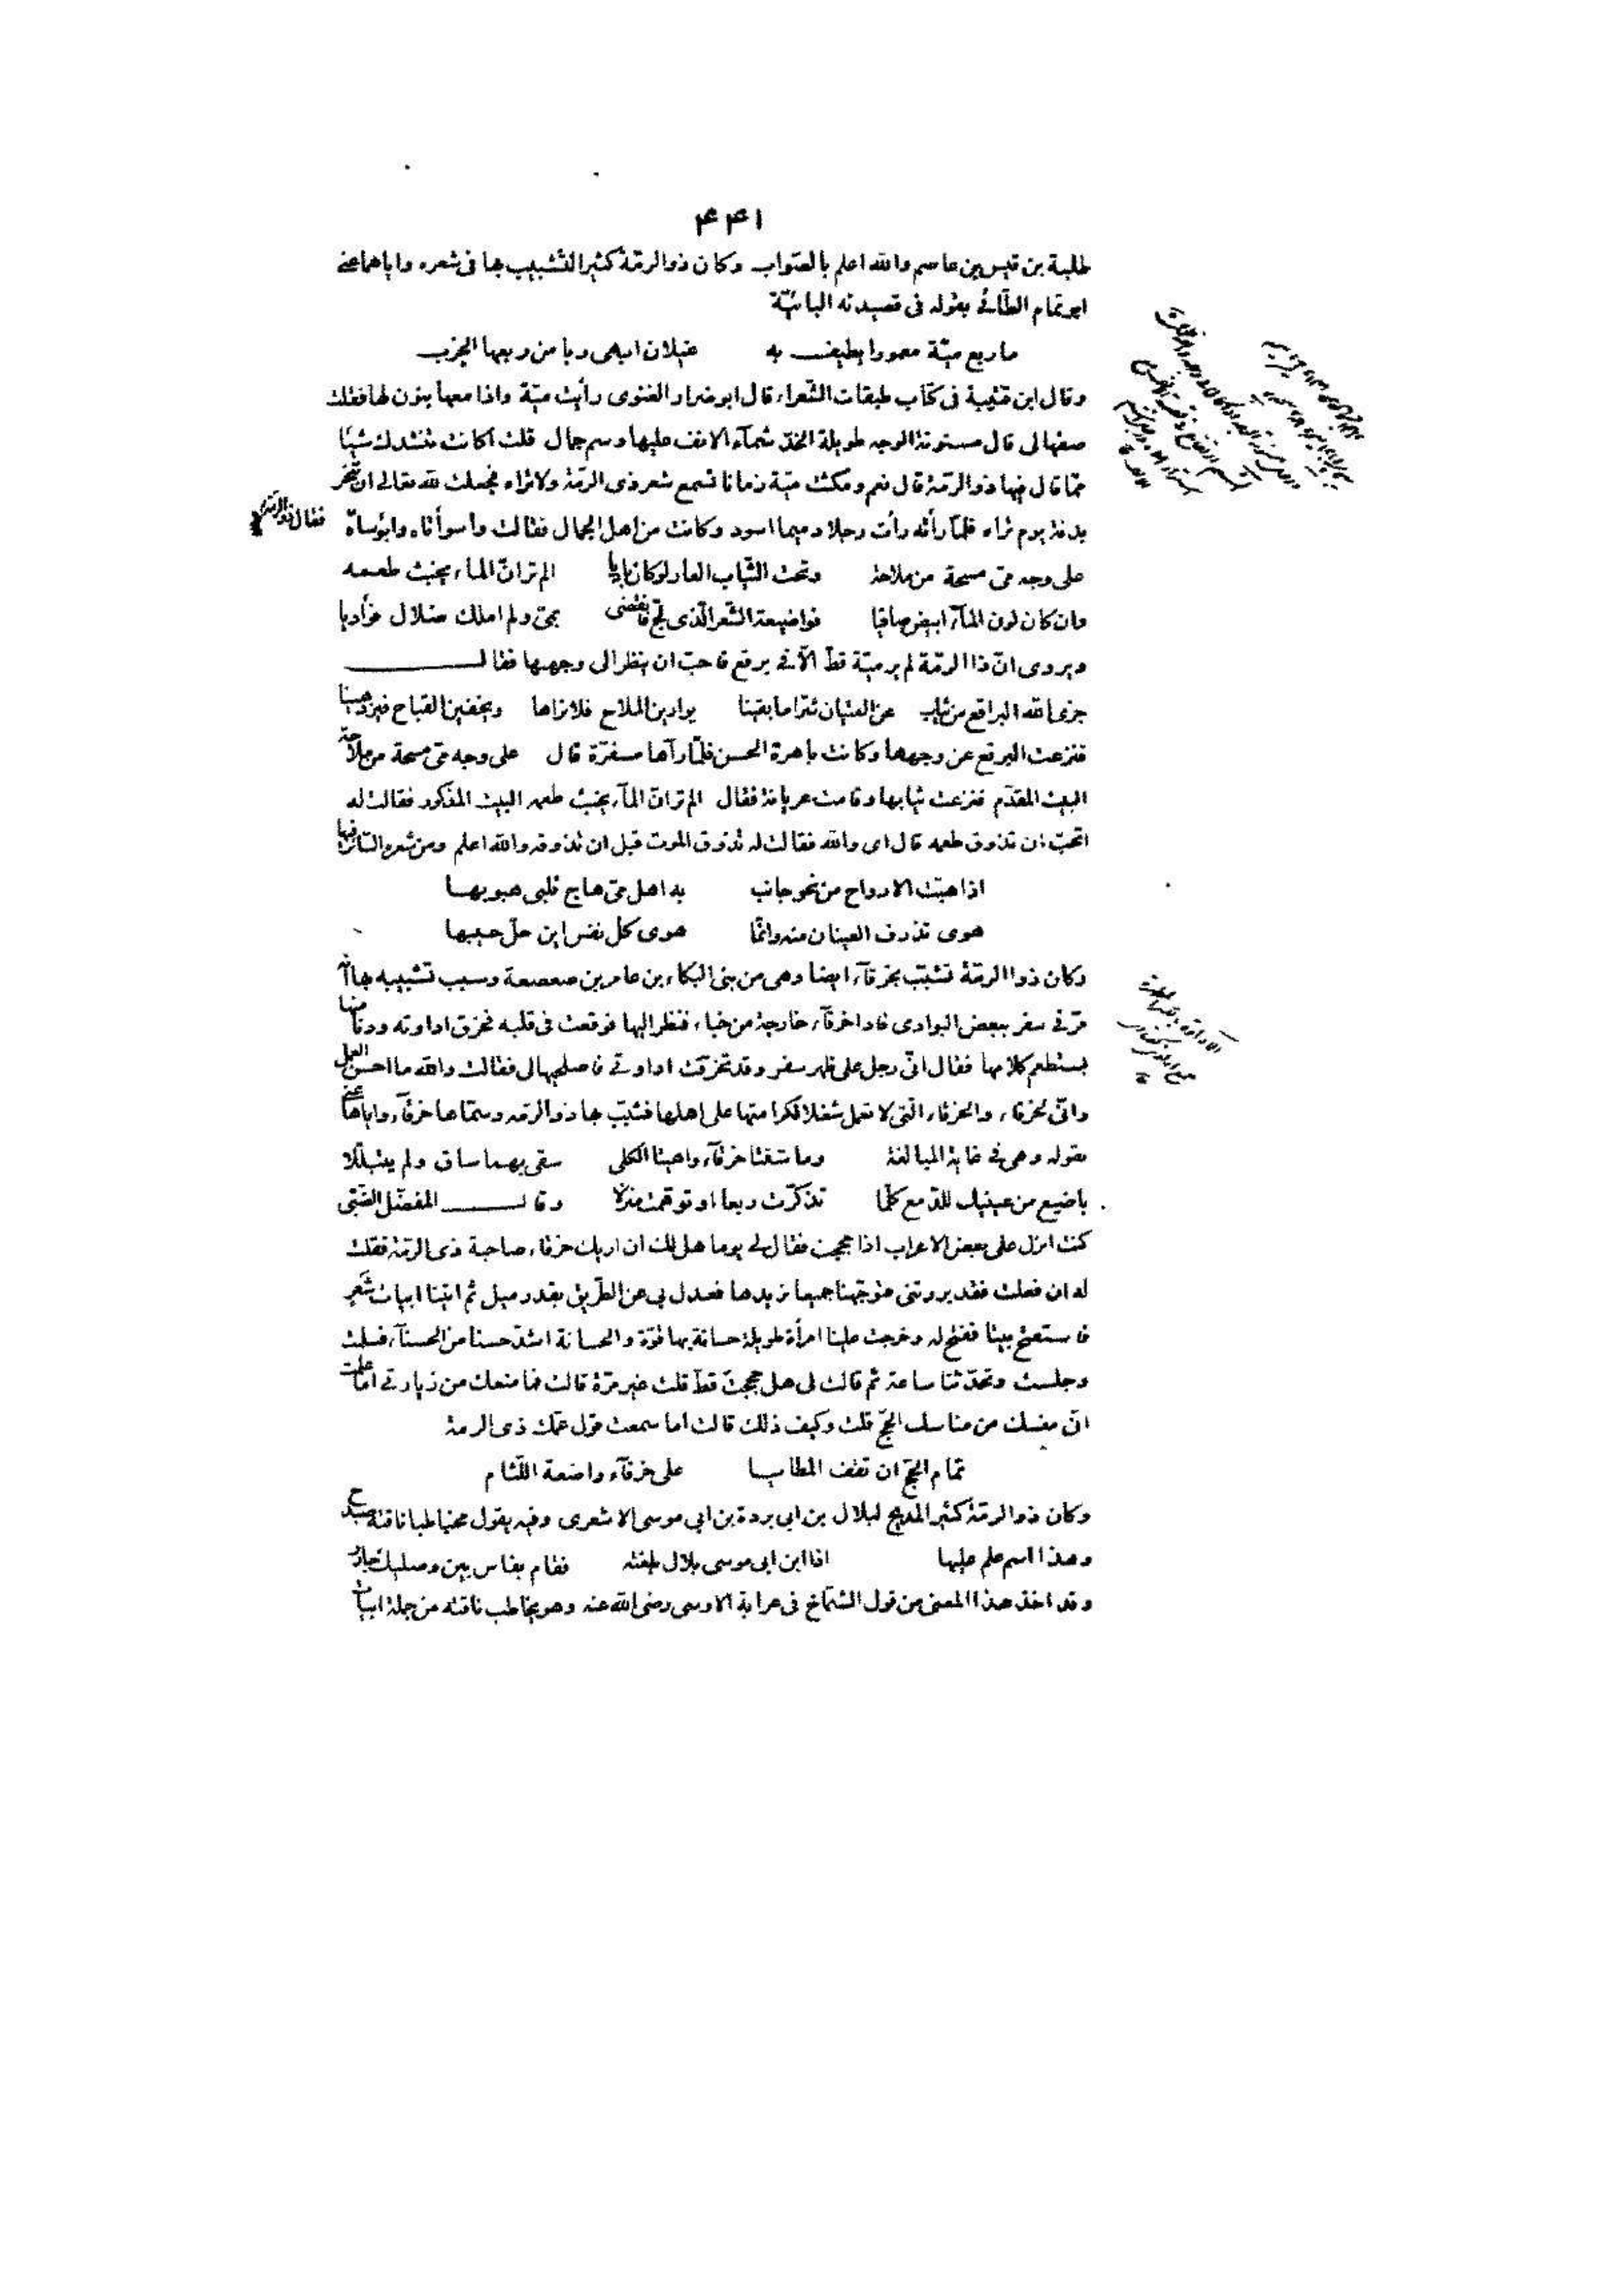 ۴۴۱
طلبة بن قيس بن عاصم والله اعلم بالصّواب وكان ذو الرمّة كثير التشبيب بها فى شعره واياهما عنى
ابو تمام الطّائى بقوله فى قصيدته البائيّة
ما ربع ميّة معمورا يطيف به غيلان ابهى ربا من ربعها الخرب
وقال ابن قتيبة فى كتاب طبقات الشّعراء قال ابو ضرار الغنوى رأيت ميّة واذا معها بنون لها فقلت
صفها لى قال مسنونة الوجه طويلة الخدّ شمآء الانف عليها وسم جمال قلت أكانت تنشدك شيئا
ممّا قال فيها ذو الرمّة قال نعم ومكثت ميّة زمانا تسمع شعر ذى الرمّة ولا تراه فجعلت لله تعالى ان تنحر
بدنة يوم تراه فلمّا رأته رأت رجلا دميما اسود وكانت من اهل الجمال فقالت واسوأتاه وابؤساه فقال ذو الرمّة
على وجه مىّ مسحة من ملاحة وتحت الثّياب العار لو كان باديا الم تر انّ الماء يخبث طعمه
وان كان لون المآء ابيض صافيا فواضيعة الشّعر الّذى لجّ فانقضى بمىّ ولم املك ضلال فؤاديا
ويروى انّ ذا الرمّة لم ير ميّة قطّ الّا فى برقع فاحبّ ان ينظر الى وجهها فقال
جزى الله البراقع من ثياب عن الفتيان شرّا ما بقينا يوارين الملاح فلا نراها ويخفين القباح فيزدهينا
فنزعت البرقع عن وجهها وكانت باهرة الحسن فلمّا رآها مسفرة قال على وجه مىّ مسحة من ملاحة
البيت المقدّم فنزعت ثيابها وقامت عريانة فقال الم تر انّ المآء يخبث طعمه البيت المذكور فقالت له
اتحبّ ان تذوق طعمه قال اى والله فقالت له تذوق الموت قبل ان تذوقه والله اعلم ومن شعره السّائر فيها
اذا هبّت الارواح من نحو جانب به اهل مىّ هاج قلبى هبوبها
هوى تذرف العينان منه وانّما هوى كل نفس اين حلّ حبيبها
وكان ذو الرمّة تشبّب بخرقآء ايضا وهى من بنى البكاء بن عامر بن صعصعة وسبب تشبيبه بها انّه
مرّ فى سفر ببعض البوادى فاذا خرقآء خارجة من خباء فنظر اليها فوقعت فى قلبه فخرق اداوته ودنا منها
يستطعم كلامها فقال انّى رجل على ظهر سفر وقد تخرّقت اداوتى فاصلحيها لى فقالت والله ما احسن العمل
وانّى لخرقاء والخرقاء الّتى لا تعمل شغلا لكرامتها على اهلها فشبّب بها ذو الرمّه وسمّاها خرقآء واياها عنى
بقوله وهى فى غاية المبالغة وما شنّتا خرقآء واهيتا الكلى سقى بهما ساق ولم يتبلّلا
باضيع من عينيك للدّمع كلّما تذكّرت ربعا او توهّمت منزلا وقال المفضّل الضّبّى
كنت انزل على بعض الاعراب اذا حججت فقال لى يوما هل لك ان اريك خرقاء صاحبة ذى الرمّة فقلت
له ان فعلت فقد بررتنى فتوجّهنا جميعا نريدها فعدل بى عن الطّريق بقدر ميل ثم اتينا ابيات شعر
فاستفتح بيتا ففتح له وخرجت علينا امرأة طويلة حسانة بها فوّة والحسانة اشدّ حسنا من الحسنآء فسلمت
وجلست وتحدّثنا ساعة ثم قالت لى هل حججت قطّ قلت غير مرّة قالت فما منعك من زيارتى اما علمت
انّى منسك من مناسك الحجّ قلت وكيف ذلك قالت اما سمعت قول عمّك ذى الرمة
تمام الحجّ ان تقف المطايا على خرقآء واضعة اللّثام
وكان ذو الرمّة كثير المديح لبلال بن ابى بردة بن ابى موسى الاشعرى وفيه يقول مخاطبا ناقته صيدح
وهذا اسم علم عليها اذا ابن ابى موسى بلال بلغته فقام بفاس بين وصليك جازر
وقد اخذ هذا المعنى من قول الشّمّاخ فى عرابة الاوسى رضى الله عنه وهو يخاطب ناقته من جملة ابيات